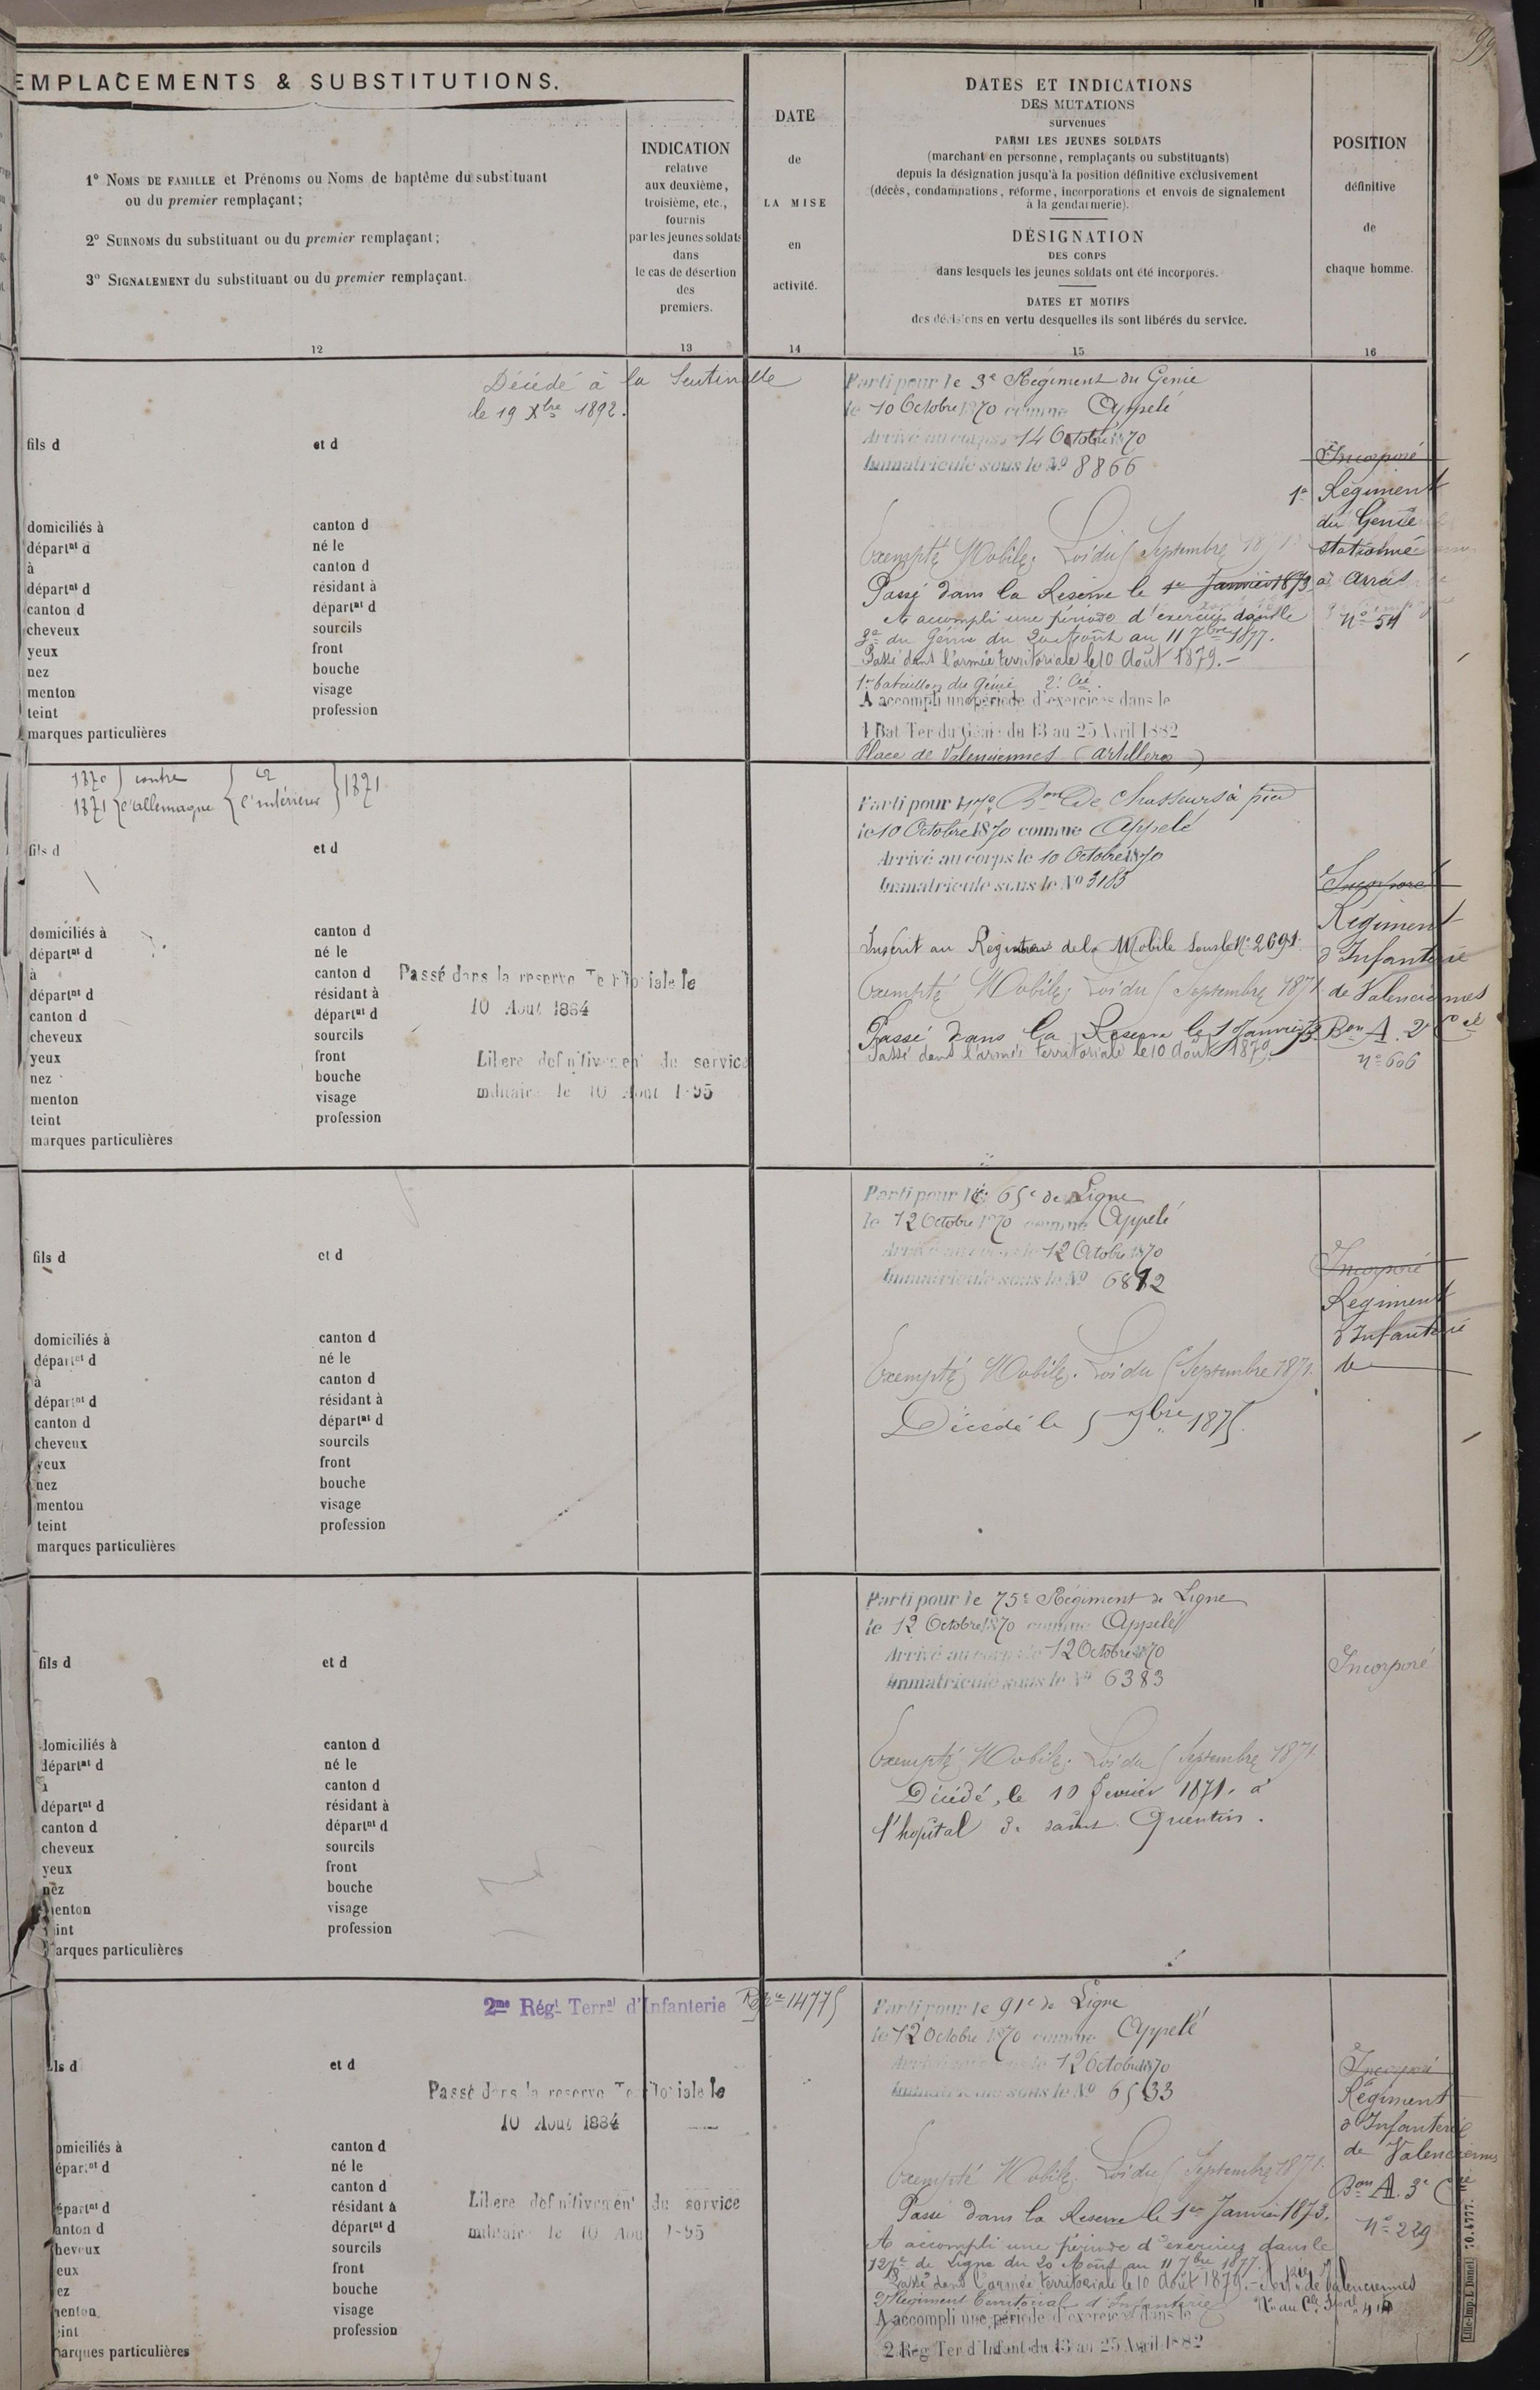 99
EMPLACEMENTS & SUBSTITUTIONS.
1° NOMS DE FAMILLE et Prénoms ou Noms de baptême du substituant
ou du premier remplaçant;
2° SURNOMS du substituant ou du premier remplaçant;
3° SIGNALEMENT du substituant ou du premier remplaçant.
12
INDICATION
relative
aux deuxième,
troisième, etc.,
fournis
par les jeunes soldats
dans
le cas de désertion
des
premiers.
13
DATE
de
LA MISE
en
activité.
14
DATES ET INDICATIONS
DES MUTATIONS
survenues
PARMI LES JEUNES SOLDATS
(marchant en personne, remplaçants ou substituants)
depuis la désignation jusqu'à la position définitive exclusivement
(décès, condamnations, réforme, incorporations et envois de signalement
à la gendarmerie).
DÉSIGNATION
DES CORPS
dans lesquels les jeunes soldats ont été incorporés.
DATES ET MOTIFS
des décisions en vertu desquelles ils sont libérés du service.
15
POSITION
définitive
de
chaque homme.
16
Décédé à la Sentinelle
le 19 Xbre 1892.
fils d et d
domiciliés à canton d
départnt d né le
à canton d
départnt d résidant à
canton d départnt d
cheveux sourcils
yeux front
nez bouche
menton visage
teint profession
marques particulières
Parti pour le 3e Régiment du Génie
le 10 Octobre 1870 comme Appelé
Arrivé au corps 14 Octobre 1870
Immatriculé sous le No 8866
Exempté Mobile. Loi du 5 Septembre 1871
Passé dans la Réserve le 1er Janvier 1873
A accompli une période d'exercices dans le
3e du Génie du 20 Août au 11 7bre 1877.
Passé dans l'armée territoriale le 10 Août 1879.-
1er bataillon du Génie 2e Cie.
A accompli une période d'exercices dans le
1 Bat Ter du Génie du 13 au 25 Avril 1882
Place de Valenciennes (Artillerie)
Incorporé
1er Régiment
du Génie
stationné
à Arras
No 54
1870 contre
1871 l'allemagne
l'intérieur 1871
fils d et d
domiciliés à canton d
départnt d né le
à canton d
départnt d résidant à
canton d départnt d
cheveux sourcils
yeux front
nez bouche
menton visage
teint profession
marques particulières
Passé dans la reserve Territoriale le
10 Aout 1884
Libere definitivement du service
militaire le 10 Aout 1895
Parti pour 17e Bon de Chasseurs à pied
le 10 Octobre 1870 comme Appelé
Arrivé au corps le 10 Octobre 1870
Immatriculé sous le No 3183
Inscrit au Registre de la Mobile sous le No 2691.
Exempté Mobile, Loi du 5 Septembre 1871
Passé dans la Réserve le 1 Janvier 73
Passé dans l'armée territoriale le 10 Août 1879.
Incorporé
Régiment
d'Infanterie
de Valenciennes
Bon A. 2e Cie
No 606
fils d et d
domiciliés à canton d
départnt d né le
à canton d
départnt d résidant à
canton d départnt d
cheveux sourcils
yeux front
nez bouche
menton visage
teint profession
marques particulières
Parti pour le 65e de Ligne
le 12 Octobre 1870 comme Appelé
Arrivé au corps le 12 Octobre 1870
Immatriculé sous le No 6812
Exempté Mobile. Loi du 5 Septembre 1871.
Décédé le 5 9bre 1875.
Incorporé
Régiment
d'Infanterie
de
fils d et d
domiciliés à canton d
départnt d né le
à canton d
départnt d résidant à
canton d départnt d
cheveux sourcils
yeux front
nez bouche
menton visage
teint profession
marques particulières
Parti pour le 75e Régiment de Ligne
le 12 Octobre 1870 comme Appelé
Arrivé au corps le 12 Octobre 1870
Immatriculé sous le No 6383
Exempté Mobile. Loi du 5 Septembre 1871.
Décédé, le 10 Fevrier 1871. à
l'hopital de saint Quentin.
Incorporé
2me Régt Terral d'Infanterie
14775
fils d et d
domiciliés à canton d
départnt d né le
canton d
départnt d résidant à
canton d départnt d
cheveux sourcils
yeux front
nez bouche
menton visage
teint profession
marques particulières
Passé dans la reserve Territoriale le
10 Aout 1884
Libere definitivement du service
militaire le 10 Aout 1895
Parti pour le 91e de Ligne
le 12 Octobre 1870 comme Appelé
Arrivé au corps le 12 Octobre 1870
Immatriculé sous le No 6533
Exempté Mobile. Loi du 5 Septembre 1871.
Passé dans la Réserve le 1er Janvier 1873.
A accompli une période d'exercices dans le
127e de Ligne du 20 Août au 11 7bre 1877.
Passé dans l'armée territoriale le 10 Août 1879. de Valenciennes
2e Régiment Territorial d'Infanterie
A accompli une période d'exercices dans le
2 Rég Ter d'Infant du 13 au 25 Avril 1882
Incorporé
Régiment
d'Infanterie
de Valenciennes
Bon A. 3e Cie
No 229
Lille-Imp. L. Danel 70.4777.